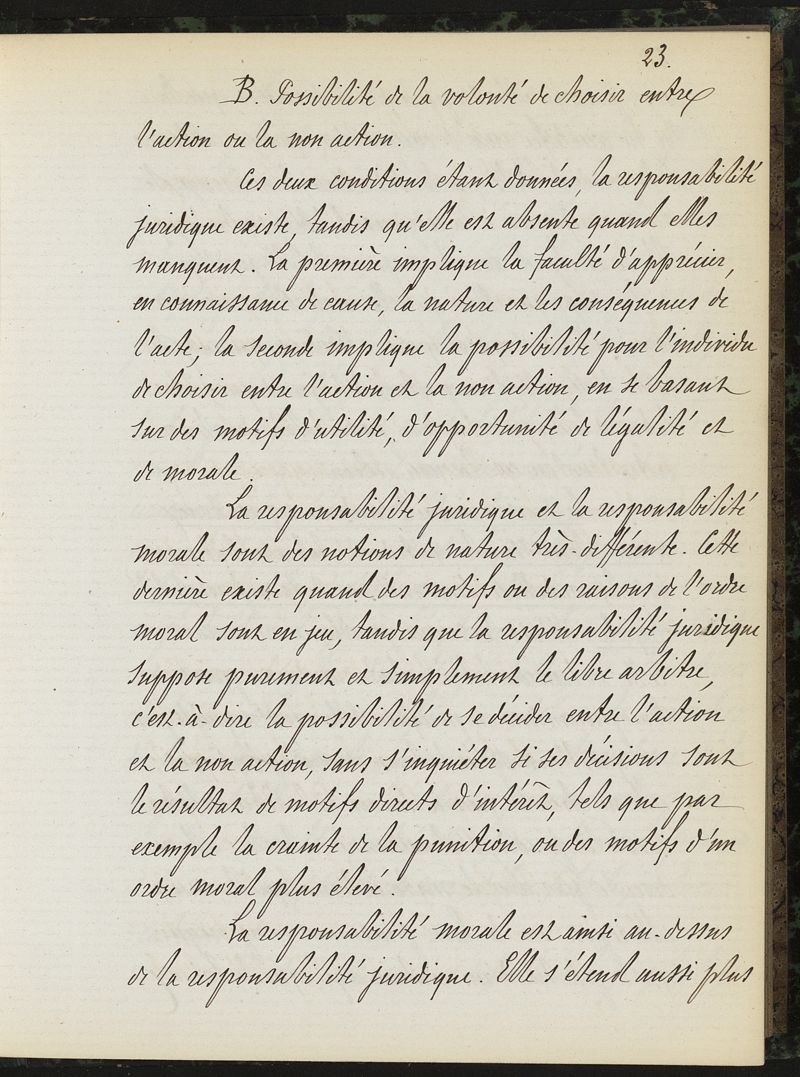 23.
B. Possibilité de la volonté de choisir entre
l'action ou la non action.
Ces deux conditions étant données, la responsabilité
juridique existe, tandis qu'elle est absente quand elles
manquent. La première implique la faculté d'apprécier,
en connaissance de cause, la nature et les conséquences de
l'acte; la seconde implique la possibilité pour l'individu
de choisir entre l'action et la non action, en se basant
sur des motifs d'utilité, d'opportunité de légalité et
de morale.
La responsabilité juridique et la responsabilité
morale sont des notions de nature très-différente. Cette
dernière existe quand des motifs ou des raisons de l'ordre
moral sont en jeu, tandis que la responsabilité juridique
suppose purement et simplement le libre arbitre,
c'est-à-dire la possibilité de se décider entre l'action
et la non action, sans s'inquiéter si ses décisions sont
le résultat de motifs directs d'intérêt, tels que par
exemple la crainte de la punition, ou des motifs d'un
ordre moral plus élevé.
La responsabilité morale est ainsi au-dessus
de la responsabilité juridique. Elle s'étend aussi plus